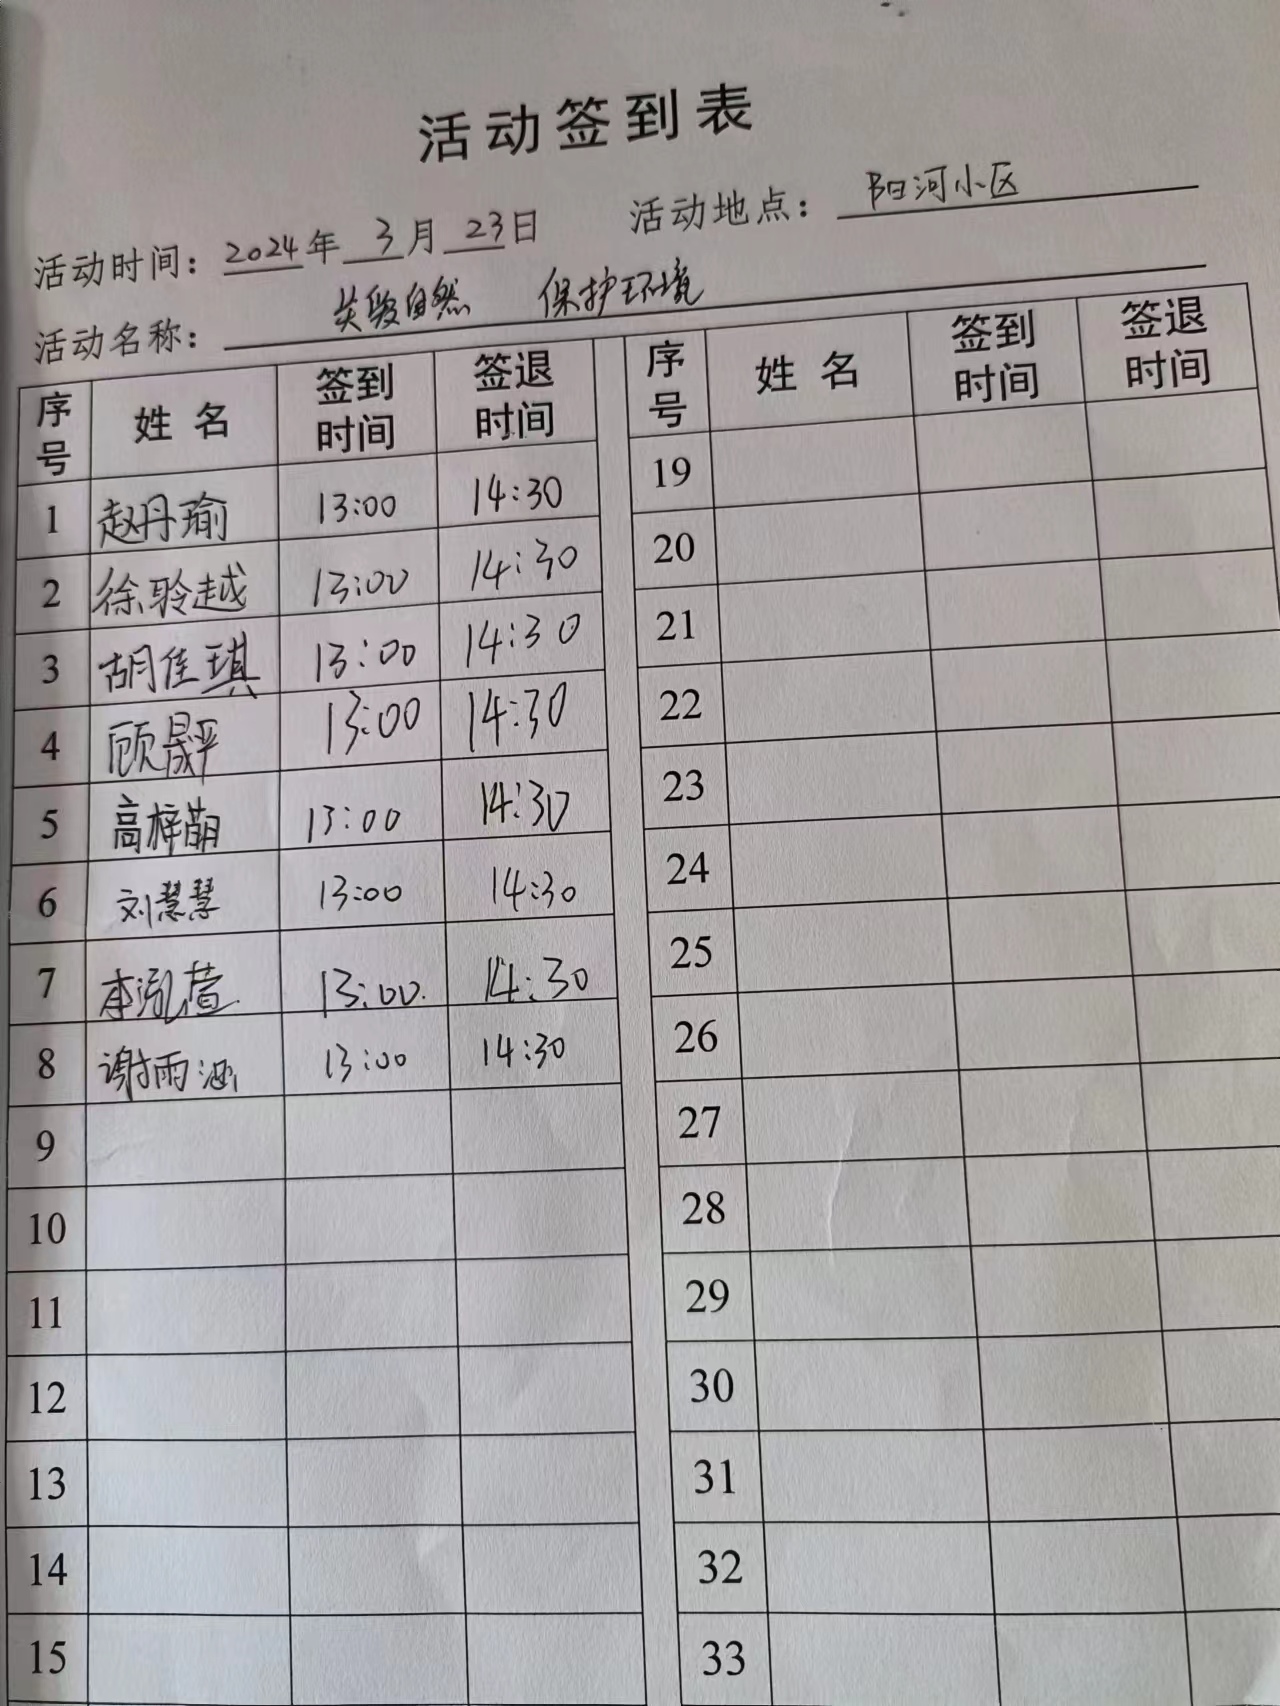 活动签到表
活动时间：2024年 3月 23日 活动地点：阳河小区
活动名称：关爱自然 保护环境
序号 姓名 签到时间 签退时间 序号 姓名 签到时间 签退时间
1 赵丹瑜 13:00 14:30 19
2 徐聆越 13:00 14:30 20
3 胡佳琪 13:00 14:30 21
4 顾晟平 13:00 14:30 22
5 高梓萌 13:00 14:30 23
6 刘慧慧 13:00 14:30 24
7 李泓萱 13:00 14:30 25
8 谢雨涵 13:00 14:30 26
9 27
10 28
11 29
12 30
13 31
14 32
15 33